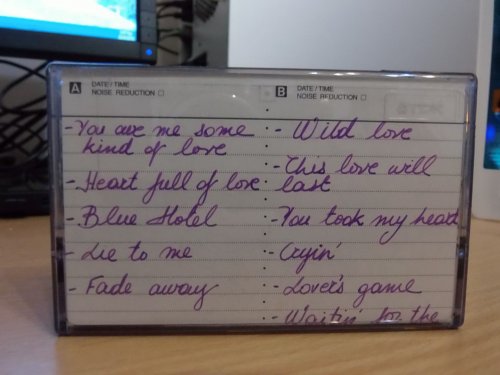 A DATE/TIME
NOISE REDUCTION
B DATE/TIME
NOISE REDUCTION
- You owe me some
kind of love
- Heart full of love
- Blue Hotel
- Lie to me
- Fade away
- Wild love
- This love will
last
- You took my heart
- Cryin'
- Lover's game
- Waitin' for the